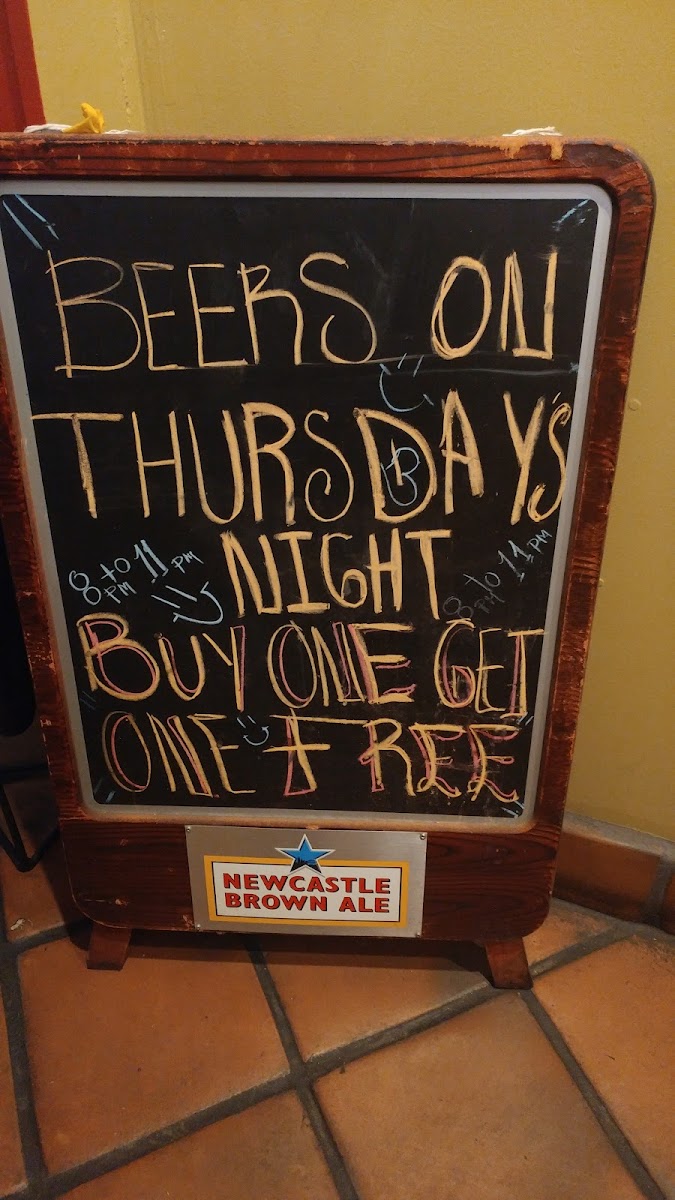 BEERS ON
THURSDAY'S
NIGHT
8 PM to 11 PM
8 PM to 11 PM
BUY ONE GET
ONE FREE
NEWCASTLE
BROWN ALE